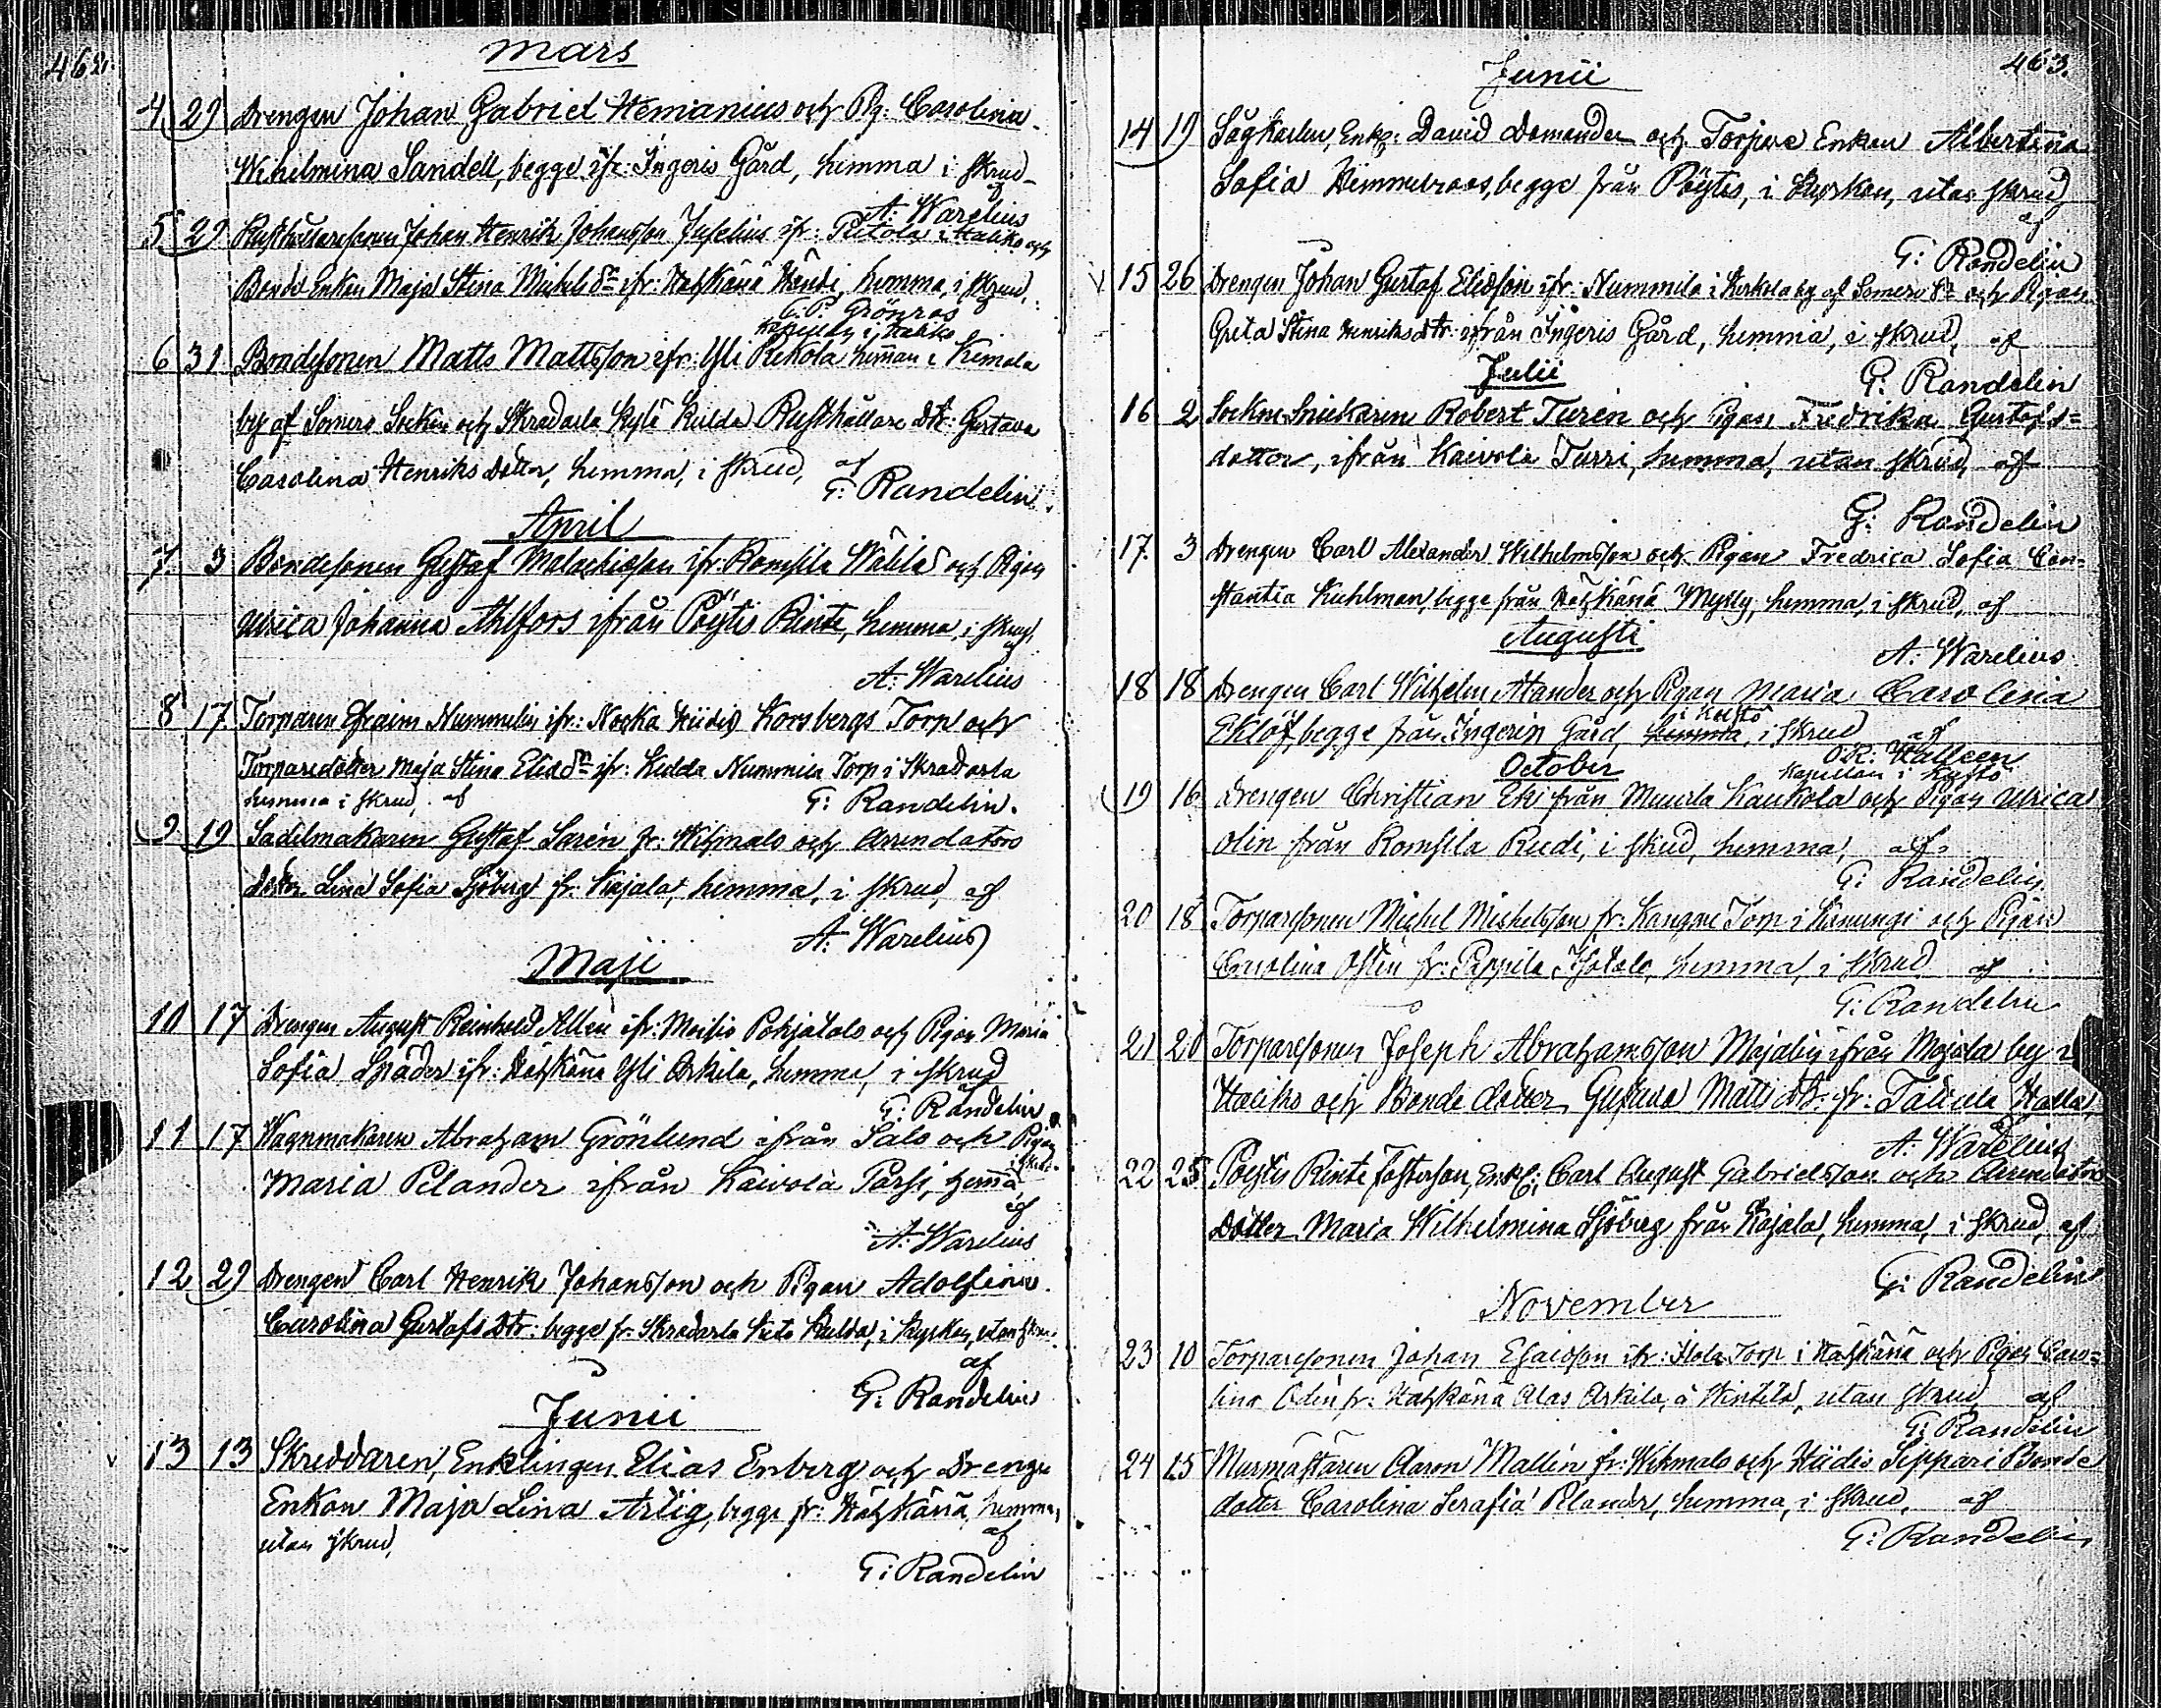 462.
Mars
4 29 Drengen Johan Gabriel Hemanius och Pig: Carolina
Wihelmina Sandell, begge ifr: Ingeris Gård, hemma i skrud
af
A: Warelius
5 29 Rusthållaresonen Johan Henrik Johansson Juselius ifr: i Haliko och
Bonde Enkan Maja Stina Michels dr ifr: Hatzkänä Händi, hemma, i skrud,
C. P. Grönroos
Kapellan i Haliko
6 31. Bondesonen Matts Mattsson ifr: Yli Rekola heman i Kimala
by af Somero Socken och Skradarla Kylä Kulda Rusthållare dtr: Gustava
Carolina Henriks dotter, hemma, i skrud, af
G: Randelin
April
7. 3 Bondesonen Gustaf Malachiasson ifr: Romsila Wälilä och Pigan
Ulrica Johanna Ahlfors ifrån Pöytis Rinte, hemma, i skrud,
af
A: Warelius
8 17. Torparen Efraim Nummelin ifr: Hiidis Korsbergs Torp och
Torparedotter Maja Stina Elias dr ifr: Kedda Nummila Torp i Skradarla
hemma i skrud, af G: Randelin.
9 19 Sadelmakaren Gustaf Sarén fr: Wihmalo och Arrendators
dotter Lina Sofia Sjöberg fr: Kajala, hemma, i skrud, af
A: Warelius
Maji
10 17 Drengen August Reinhold Allén ifr: Moisio Pohjatalo och Pigan Maria
Sofia ifr: Hatzkänä Yli Arkila, hemma, i skrud
G: Randelin
11 17 Wagnmakaren Abraham Grönlund ifrån Salo och Pigan
Maria Pelander ifrån Kaivola Parsi, hemma, i skrud
af
A: Warelius
12 29 Drengen Carl Henrik Johansson och Pigan Adolfina
Carolina Gustafs dtr: begge fr: Skradarla Kulda, i Kyrkan, utan skrud
af
G: Randelin
Junii
13 13 Skreddaren, Enklingen Elias Enberg och Drenge
Enkan Maja Lina Artig, begge fr: Hatzkänä, hemma,
utan skrud, af
G: Randelin
463.
Junii
14 19 Sågkarlen, Enkl: David Domander och Torpare Enkan Albertina
Sofia Himmelroos, begge från Pöytis, i Kyrkan, utan skrud,
af
G: Randelin
15 26 Drengen Johan Gustaf Eliasson ifr: Nummila i Kerkola by af Somero Sn och Pigan
Greta Stina Henriks dtr: ifrån Ingeris Gård, hemma, i skrud, af
Julii
G: Randelin
16 2 Sockne Snickaren Robert Turén och Pigan Fredrika Gustafs-
dotter, ifrån Kaivola Turri, hemma, utan skrud, af
G: Randelin
17. 3 Drengen Carl Alexander Wilhelmsson och Pigan Fredrica Sofia Con-
stantia Kuhlman, begge från Hatzkänä Mylly, hemma, i skrud, af
Augusti
A: Warelius
18 18 Drengen Carl Wilhelm Atander och Pigan Maria Carolina
Eklöf, begge från Ingeris Gård, hemma i Kustö, i skrud af
October
Kapellan i Kustö
19 16 Drengen Christian Eki från Muurla Kaukola och Pigan Ulrica
Olin från Romsila Rudi, i skrud, hemma, af
G: Randelin
20 18 Torparesonen Michel Michelsson fr: Kangare Torp i Kanungi och Pigan
Carolina Ostén fr: Pappila Isotalo, hemma, i skrud af
G: Randelin
21 20 Torparesonen Joseph Abrahamsson Majalin ifrån Majala by i
Haliko och Bonde dotter Gustava Matts dtr: fr: Halla,
af
A: Warelius
22 25 Pöytis Rinte Fosterson, Enkl: Carl August Gabrielsson och Arrendators
dotter Maria Wilhelmina Sjöberg från Kajala, hemma, i skrud, af
G: Randelin
November
23 10 Torparesonen Johan Esaiasson ifr: Torp i Hatzkänä och Pigan Caro-
lina Odén fr: Hatzkänä Alas Arkila, å Hintilä, utan skrud, af
G: Randelin
24 15 Murmästaren Aaron Mallén fr: Wihmalo och Hiidis Seppari Bonde
dotter Carolina Serafia Pelander, hemma, i skrud, af
G: Randelin